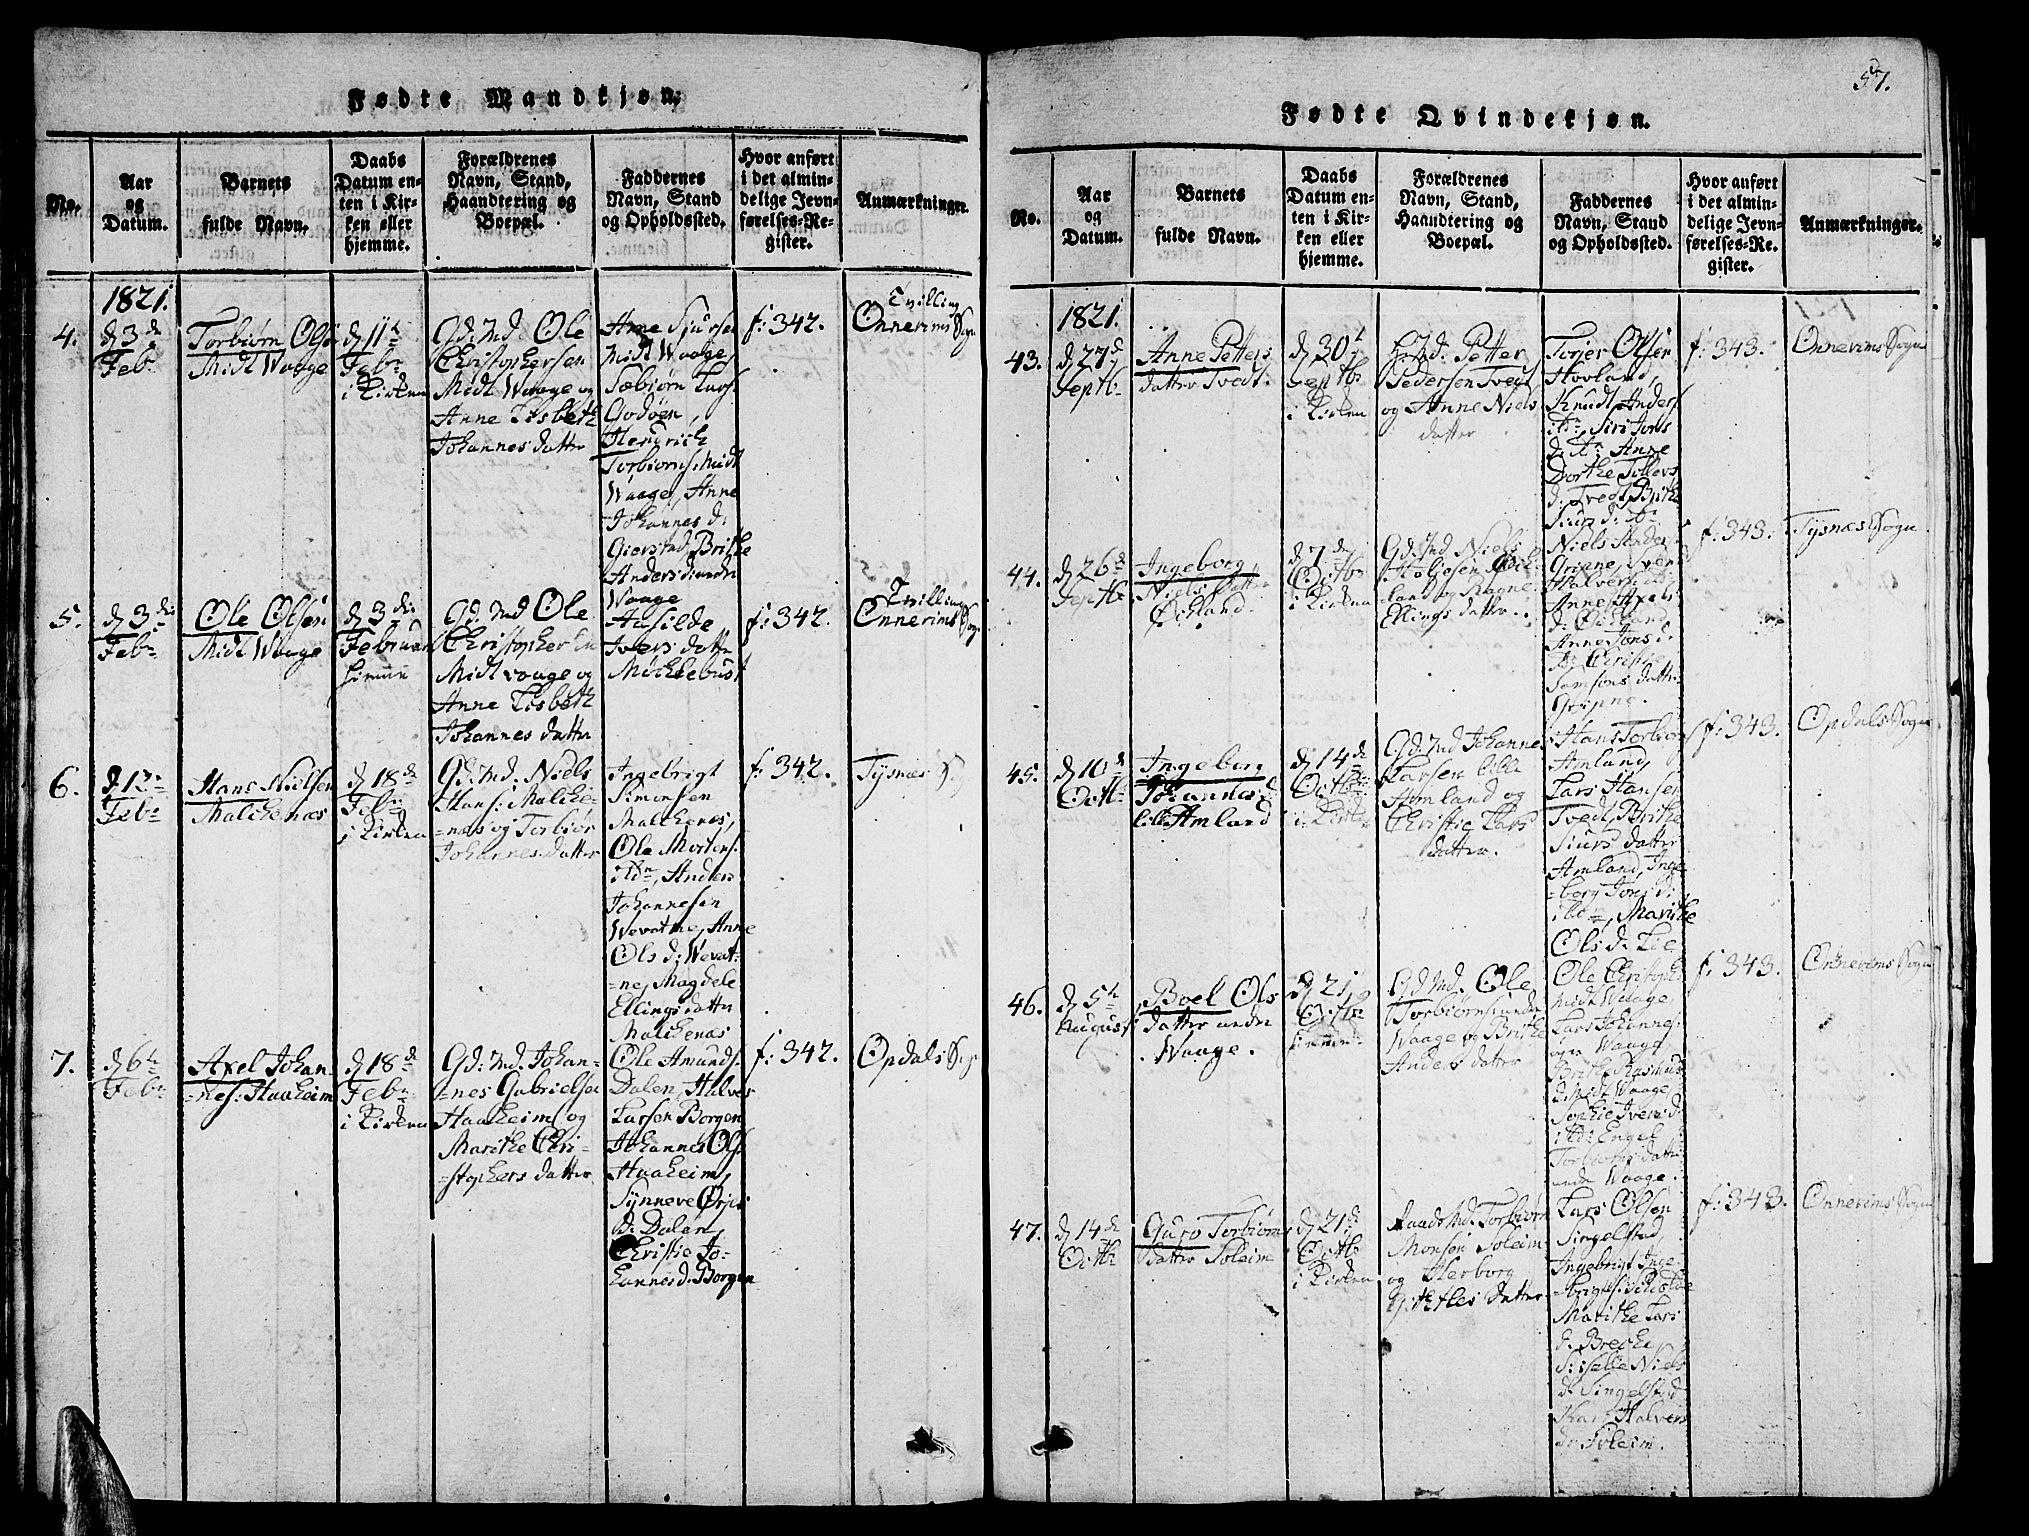 57.
Fødte Mandkjøn.
No.
Aar
og
Datum.
Barnets
fulde Navn.
Daabs
Datum en-
ten i Kir-
ken eller
hjemme.
Forældrenes
Navn, Stand,
Haandtering og
Boepæl.
Faddernes
Navn, Stand
og Opholdssted.
Hvor anført
i det almin-
delige Jevn-
førelses-Re-
gister.
Anmærkninger.
1821.
4.
d 3d
Febr
Torbiørn Olsen
Midt Waage
d 11t
Febr
i Kirken
Gd: Md Ole
Christophersen
Midt Waage og
Anne Lisbeth
Johannes datter
Arne Sjursen
Midt Waage,
Sæbiørn Lars:
Godøen,
Hendrich
Torbiørns: Midt
Waage, Anne
Johannes d:
Gierstad, Brithe
Anders d: under
Waage
f: 342.
Tvilling
Onnerims Sogn
5.
d 3d:
Febr
Ole Olsen
Midt Waage
d 3d:
Februar
hiemme
Gd: Md Ole
Christophersen
Midt vaage og
Anne Lisbeth
Johannes datter
Aasilde
Ivers datter
Micklebust
f: 342.
Tvilling
Onnerims Sogn
6.
Febr
Hans Nielsen
Malchenæs
d 18de
Febr
i Kirken
Gd: Md. Niels
Hans: Malche-
=næs og Torbiør
Johannes datter
Ingebrigt
Simonsen
Malchenæs,
Ole Mortens:
ibdn, Anders
Johannesen
Wevatne, Anne
Ols d: Wevat-
=ne, Magdele
Ellings datter
Malchenæs
f: 342.
Tysnæs Sogn
7.
d 6t
Febr
Axel Johan-
=nes: Haaheim
d 18de
Febr
i Kirken
Gd: Md. Johan-
=nes Gabrielsen
Haaheim og
Marithe Chri-
=stophers datter
Ole Amunds:
Dalen, Halvor
Larsen Borgen
Johannes Ols:
Haaheim,
Synneve Ørjes
D: Dalen,
Christie Jo-
hannes d: Borgen
f: 342.
Opdals Sogn
Fødte Qvindekjøn.
No.
Aar
og
Datum.
Barnets
fulde Navn.
Daabs
Datum en-
ten i Kir-
ken eller
hjemme.
Forældrenes
Navn, Stand,
Haandtering og
Boepæl.
Faddernes
Navn, Stand
og Opholdssted.
Hvor anført
i det almin-
delige Jevn-
førelses-Re-
gister.
Anmærkninger.
1821.
43.
d 27d
Septbr
Anne Petters
datter Tvedt.
d 30t
Septbr
i Kirken
Petter
Pedersen Tvedt
og Anne Niels
datter
Torjer Olsen
Hovland,
Knudt Anders:
Siri Jons
Anne
Dorthe Tollevs
d: Tvedt, Brithe
Siurs d:
f: 343.
Onnerims Sogn
44.
d 26d
Septbr
Ingeborg
Niels datter
Øikland.
d 7de
Octbr
i Kirken
Gd: Md Niels
Ragne
Ellings datter.
Niels Anders:
Gripne, Sven
Halvers:
Anne Axels
Anne Jons d:
Christie
Samsons datter
Gripne.
f: 343.
Tysnæs Sogn
45.
d 10d
Octbr
Ingeborg
Johannes d
lille Amland
d 14de
Octbr
i Kirken
Gd: Md Johannes
Larsen lille
Amland og
Christie Lars
datter.
Hans Torbiør
Amland,
Lars Hansen
Tvedt, Brithe
Siurs datter
Amland, Inge-
=borg Jons d:
ibdn, Marithe
Ols d: Lie
f: 343.
Opdals Sogn
46.
d 5t
August
Boel Ols
datter under
Waage.
d 21
Octbr
hiemme
Gd Md. Ole
Torbiørns: under
Waage og Brithe
Anders datter
Ole Christoph:
Midt Waage,
Lars Johannes:
øvre Waage
Brithe Rasmus
d: Midt Waage,
Sophie Ivers d:
ibd: Engel
Torbiørns datter
under Waage.
f: 343.
Onnerims Sogn
47.
d 14de
Octbr
Guro Torbiørns
datter Soleim
d 21d
Octbr
i Kirken
Torbiørn
Monsen Soleim
og Herborg
datter
Lars Olsen
Singelstad,
Ingebrigt Inge-
Marithe Lars
d: Breche
Siselle Niels
d: Singelstad
Kari Halvers
d: Soleim.
f: 343.
Onnerims Sogn